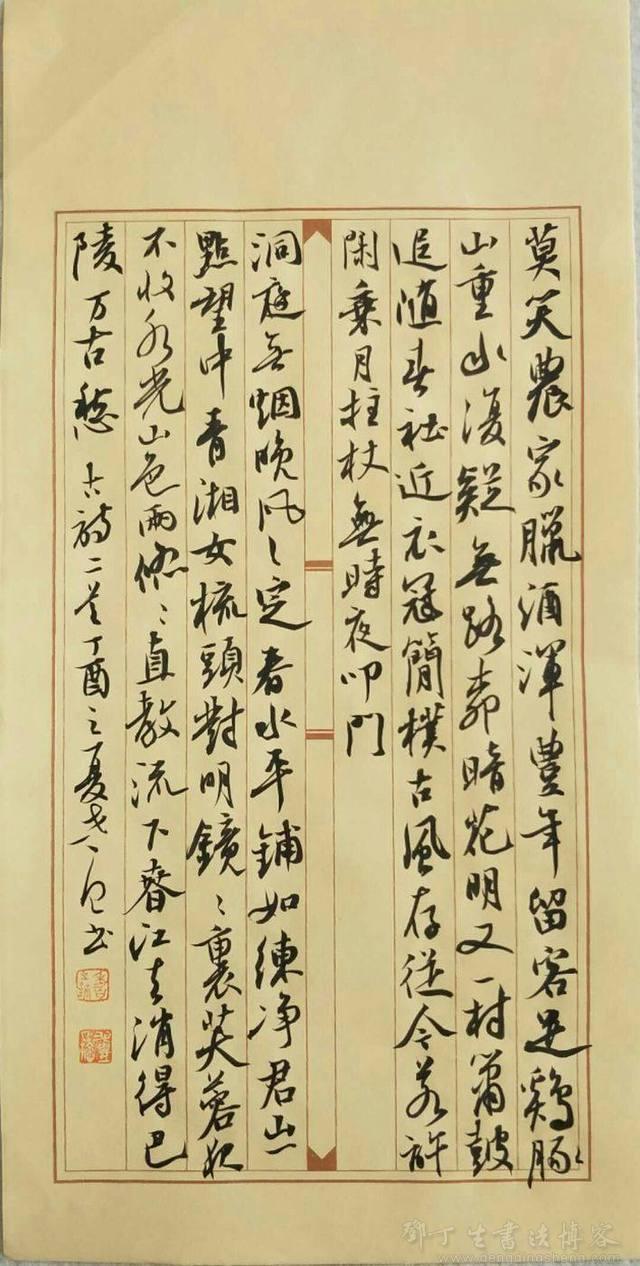 莫笑農家臘酒渾豐年留客足鷄豚
山重水復疑無路柳暗花明又一村簫鼓
追隨春社近衣冠簡樸古風存從今若許
閑乘月拄杖無時夜叩門
洞庭無烟晚風〻定春水平鋪如練净君山一
點望中青湘女梳頭對明鏡〻裏芙蓉夜
不收水光山色兩悠〻直教流下春江去消得巴
陵万古愁 古詩二首丁酉之夏書
鄧丁生書法博客
www.dengdingsheng.com